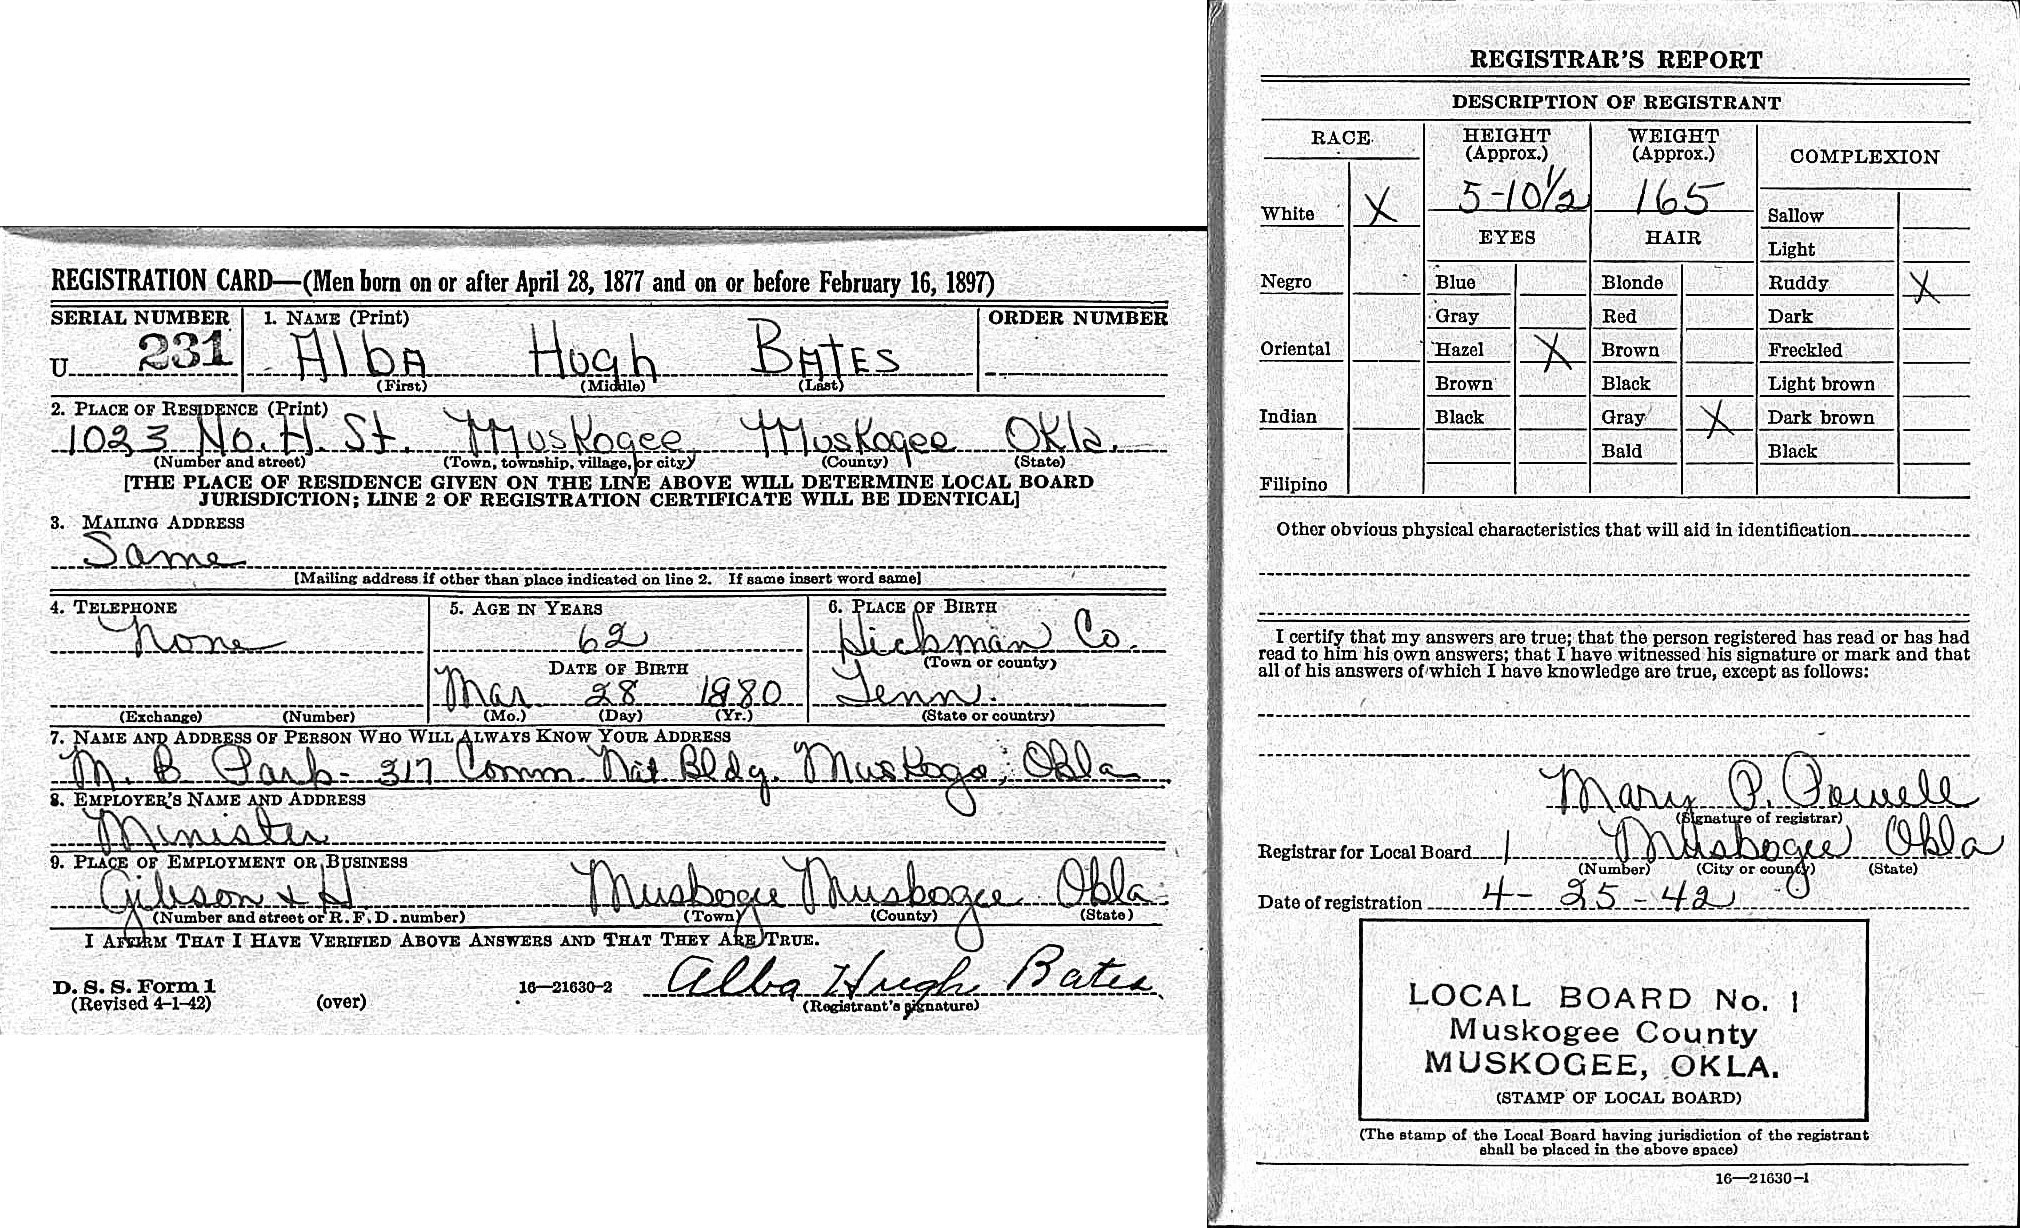 REGISTRATION CARD—(Men born on or after April 28, 1877 and on or before February 16, 1897)
SERIAL NUMBER 1. NAME (Print) ORDER NUMBER
U 231 Alba Hugh Bates
(First) (Middle) (Last)
2. PLACE OF RESIDENCE (Print)
1023 No. H. St. Muskogee Muskogee Okla.
(Number and street) (Town, township, village, or city) (County) (State)
[THE PLACE OF RESIDENCE GIVEN ON THE LINE ABOVE WILL DETERMINE LOCAL BOARD
JURISDICTION; LINE 2 OF REGISTRATION CERTIFICATE WILL BE IDENTICAL]
3. MAILING ADDRESS
Same
[Mailing address if other than place indicated on line 2. If same insert word same]
4. TELEPHONE 5. AGE IN YEARS 6. PLACE OF BIRTH
None 62 Hickman Co.
DATE OF BIRTH (Town or county)
Mar. 28 1880 Tenn.
(Exchange) (Number) (Mo.) (Day) (Yr.) (State or country)
7. NAME AND ADDRESS OF PERSON WHO WILL ALWAYS KNOW YOUR ADDRESS
M. B Park - 317 Comm. Nat Bldg. Muskoge, Okla
8. EMPLOYER'S NAME AND ADDRESS
Minister
9. PLACE OF EMPLOYMENT OR BUSINESS
Gibson & H Muskogee Muskogee Okla.
(Number and street or R. F. D. number) (Town) (County) (State)
I AFFIRM THAT I HAVE VERIFIED ABOVE ANSWERS AND THAT THEY ARE TRUE.
D. S. S. Form 1
(Revised 4-1-42) (over) 16—21630-2 Alba Hugh Bates
(Registrant's signature)
REGISTRAR'S REPORT
DESCRIPTION OF REGISTRANT
RACE HEIGHT (Approx.) WEIGHT (Approx.) COMPLEXION
White X 5-10 1/2 165 Sallow
EYES HAIR Light
Negro Blue Blonde Ruddy X
Gray Red Dark
Oriental Hazel X Brown Freckled
Brown Black Light brown
Indian Black Gray X Dark brown
Bald Black
Filipino
Other obvious physical characteristics that will aid in identification
I certify that my answers are true; that the person registered has read or has had
read to him his own answers; that I have witnessed his signature or mark and that
all of his answers of which I have knowledge are true, except as follows:
Mary P. Powell
(Signature of registrar)
Registrar for Local Board 1 Muskogee Okla
(Number) (City or county) (State)
Date of registration 4 - 25 - 42
LOCAL BOARD No. 1
Muskogee County
MUSKOGEE, OKLA.
(STAMP OF LOCAL BOARD)
(The stamp of the Local Board having jurisdiction of the registrant
shall be placed in the above space)
16—21630-1